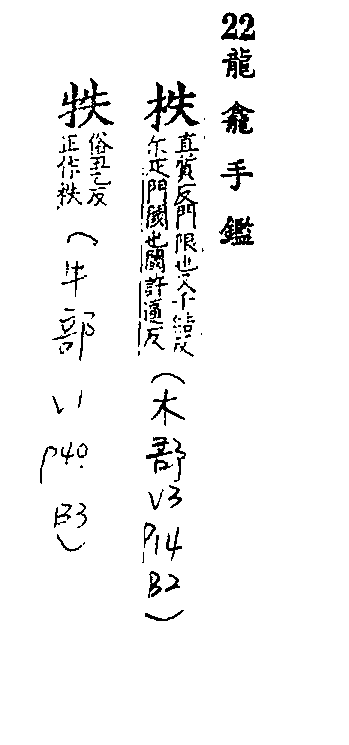 22 龍龕手鑑
柣 直質反門限也又千結反
尔疋門閾也閾許逼反
(木部 V3 P14 B2)
牪 俗丑乙反
正作秩
(牛部 V1 P40. B3)